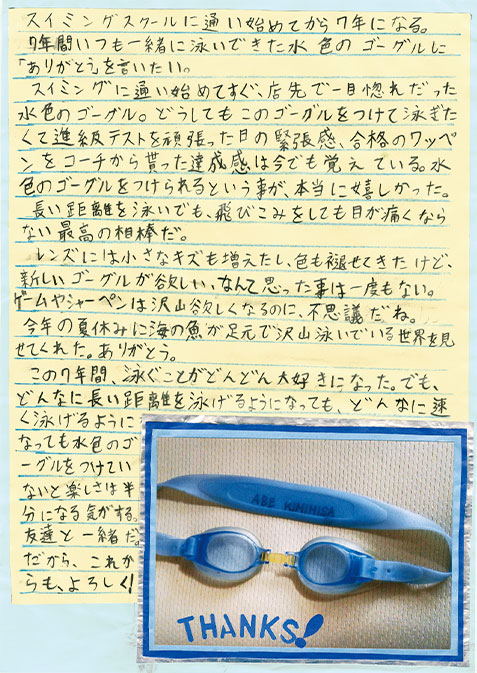 スイミングスクールに通い始めてから7年になる。
7年間いつも一緒に泳いできた水色のゴーグルに
「ありがとう」を言いたい。
スイミングに通い始めてすぐ、店先で一目惚れだった
水色のゴーグル。どうしてもこのゴーグルをつけて泳ぎた
くて進級テストを頑張った日の緊張感、合格のワッペ
ンをコーチから貰った達成感は今でも覚えている。水
色のゴーグルをつけられるという事が、本当に嬉しかった。
長い距離を泳いでも、飛びこみをしても目が痛くなら
ない最高の相棒だ。
レンズには小さなキズも増えたし、色も褪せてきたけど、
新しいゴーグルが欲しい、なんて思った事は一度もない。
ゲームやシャーペンは沢山欲しくなるのに、不思議だね。
今年の夏休みに海の魚が足元で沢山泳いでいる世界を見
せてくれた。ありがとう。
この7年間、泳ぐことがどんどん大好きになった。でも、
どんなに長い距離を泳げるようになっても、どんなに速
く泳げるように
なっても水色のゴ
ーグルをつけてい
ないと楽しさは半
分になる気がする。
友達と一緒だ。
だから、これか
らも、よろしく!
ABE KIMIHISA
THANKS!